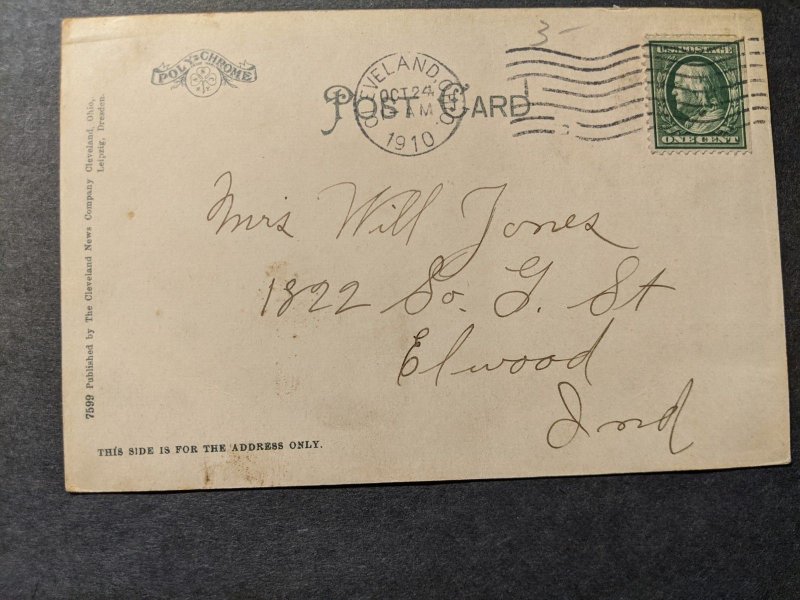 POLY-CHROME
POST CARD
CLEVELAND, OHIO
OCT 24
AM
1910
U.S. POSTAGE
ONE CENT
3-
Mrs Will Jones
1822 So. G. St
Elwood
Ind
7599 Published by The Cleveland News Company Cleveland, Ohio,
Leipzig, Dresden.
THIS SIDE IS FOR THE ADDRESS ONLY.